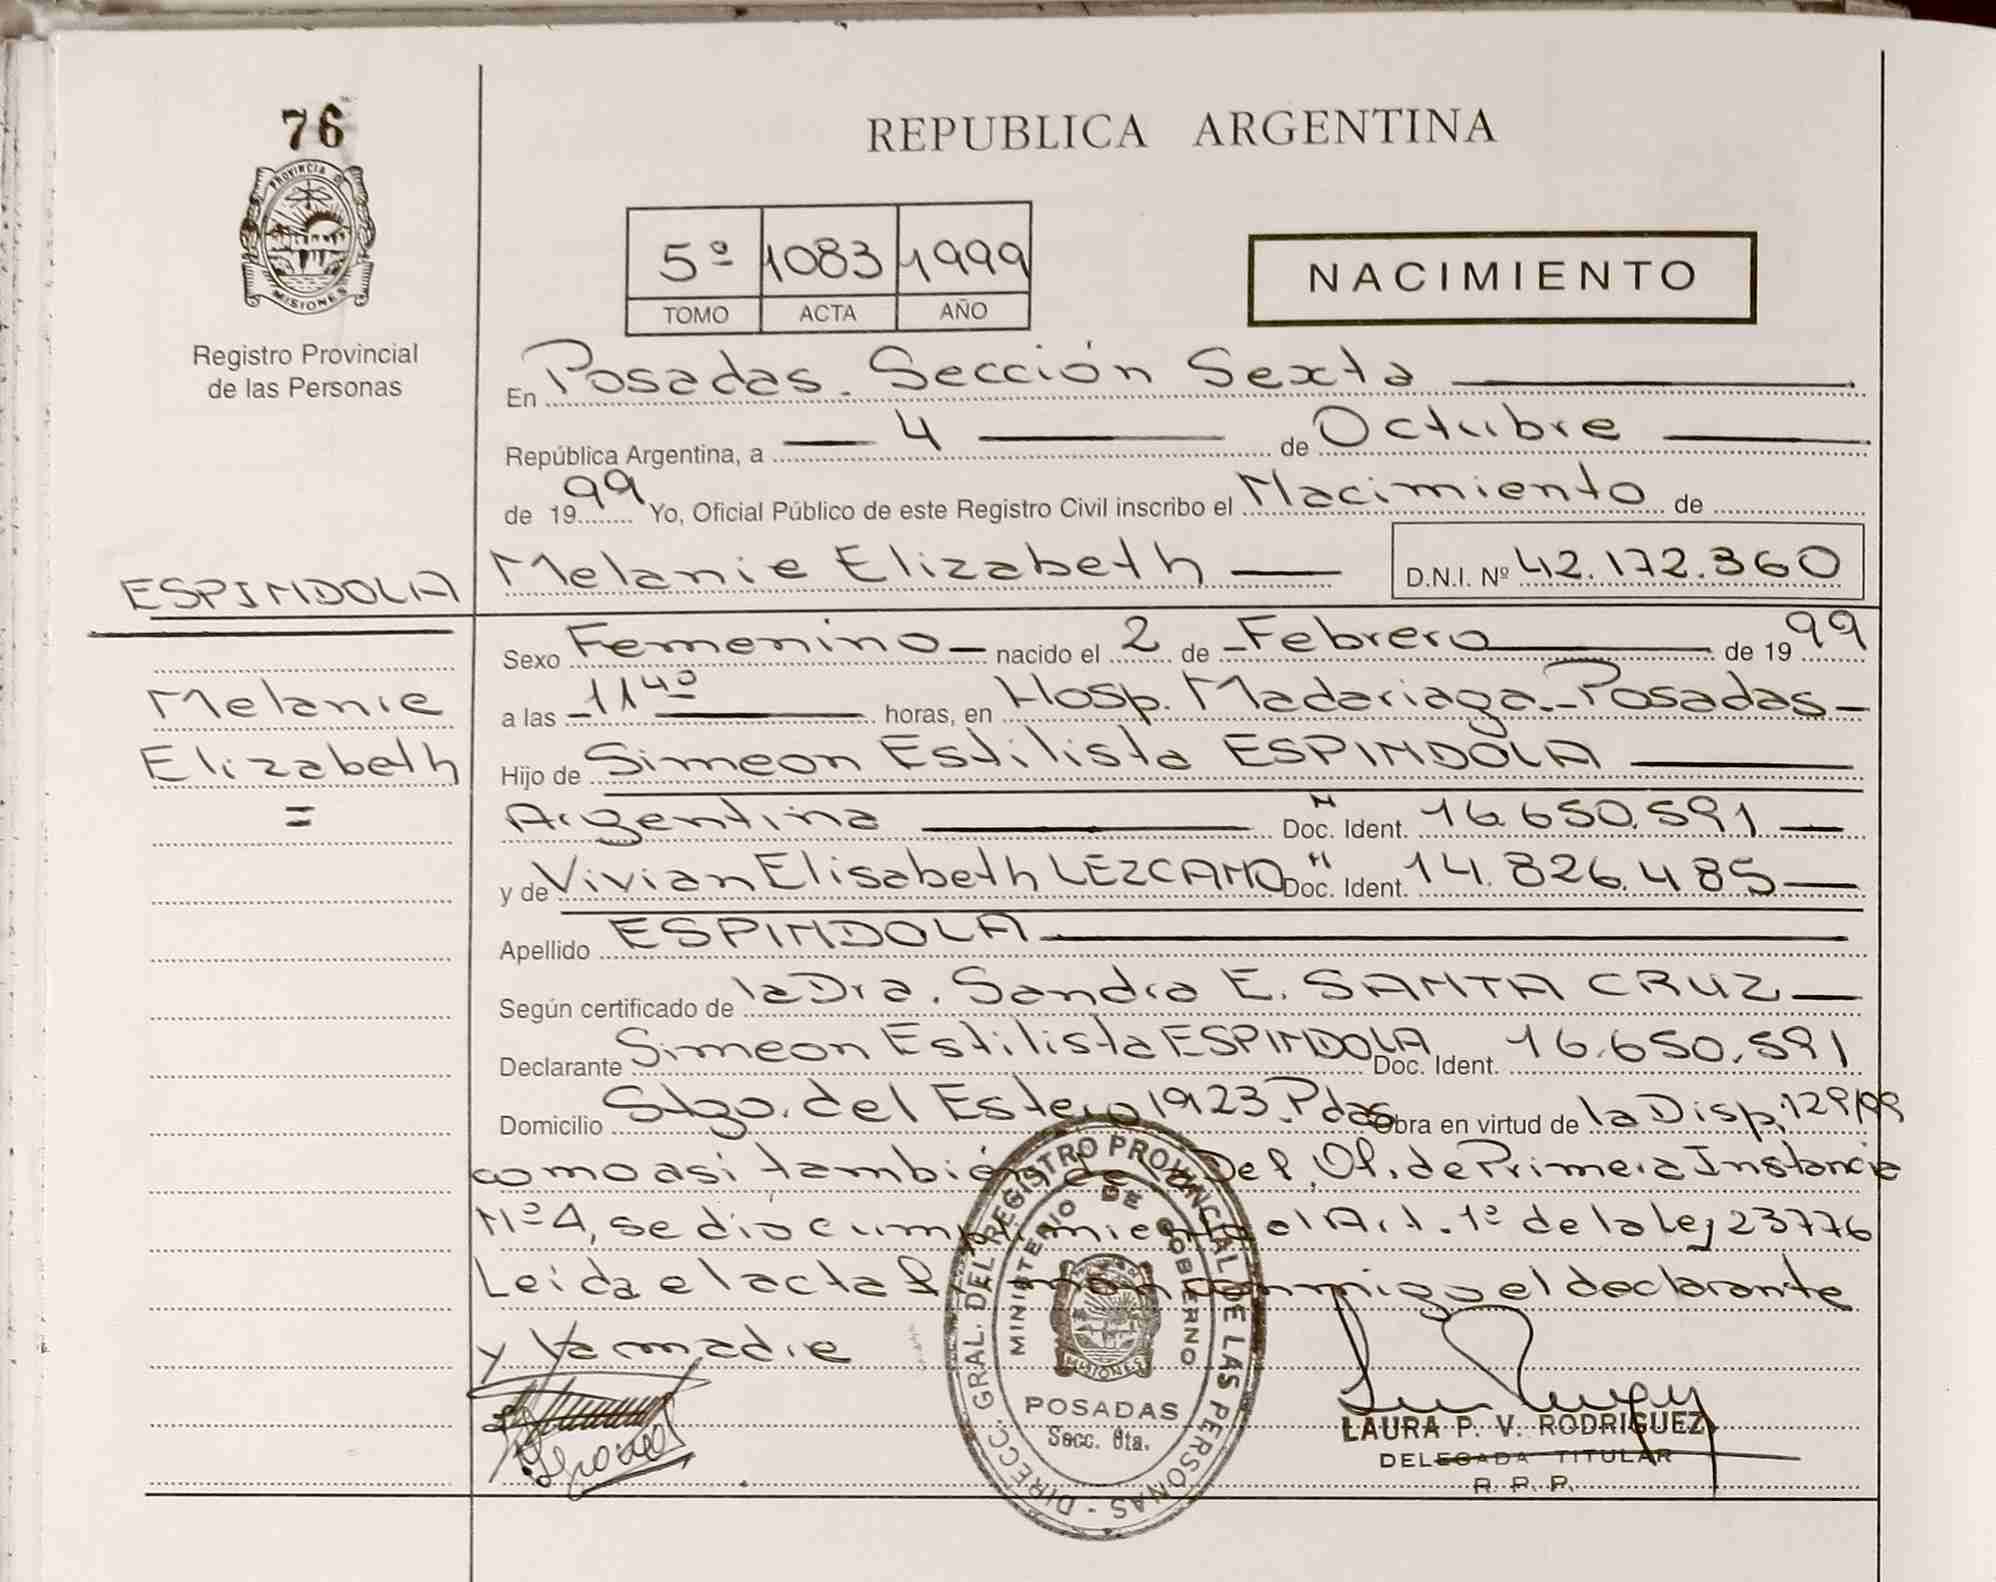 76
PROVINCIA D
MISIONES
Registro Provincial
de las Personas
REPUBLICA ARGENTINA
5º 1083 1999
TOMO ACTA AÑO
NACIMIENTO
En Posadas. Sección Sexta
República Argentina, a 4 de Octubre
de 1999 Yo, Oficial Público de este Registro Civil inscribo el Nacimiento de
ESPINDOLA
Melanie Elizabeth D.N.I. Nº 42.172.360
Sexo Femenino nacido el 2 de Febrero de 1999
Melanie
a las 11 40 horas, en Hosp. Madariaga.-Posadas-
Elizabeth
=
Hijo de Simeon Estilista ESPINDOLA
Argentina Doc. Ident. 16.650.591
y de Vivian Elisabeth LEZCANO Doc. Ident. 14.826.485
Apellido ESPINDOLA
Según certificado de la Dra. Sandra E. SANTA CRUZ
Declarante Simeon Estilista ESPINDOLA Doc. Ident. 16.650.591
Domicilio Stgo. del Estero 1923. Pdas Obra en virtud de la Disp. 129/99
como asi también de Def. Of. de Primera Instancia
Nº 4, se dió cumplimiento al Art. 1º de la Ley 23776
Leida el acta firman conmigo el declarante
y la madre
DIRECC. GRAL. DEL REGISTRO PROVINCIAL DE LAS PERSONAS -
MINISTERIO DE GOBIERNO
MISIONES
POSADAS
Secc. 6ta.
LAURA P. V. RODRIGUEZ
DELEGADA TITULAR
R. P. P.